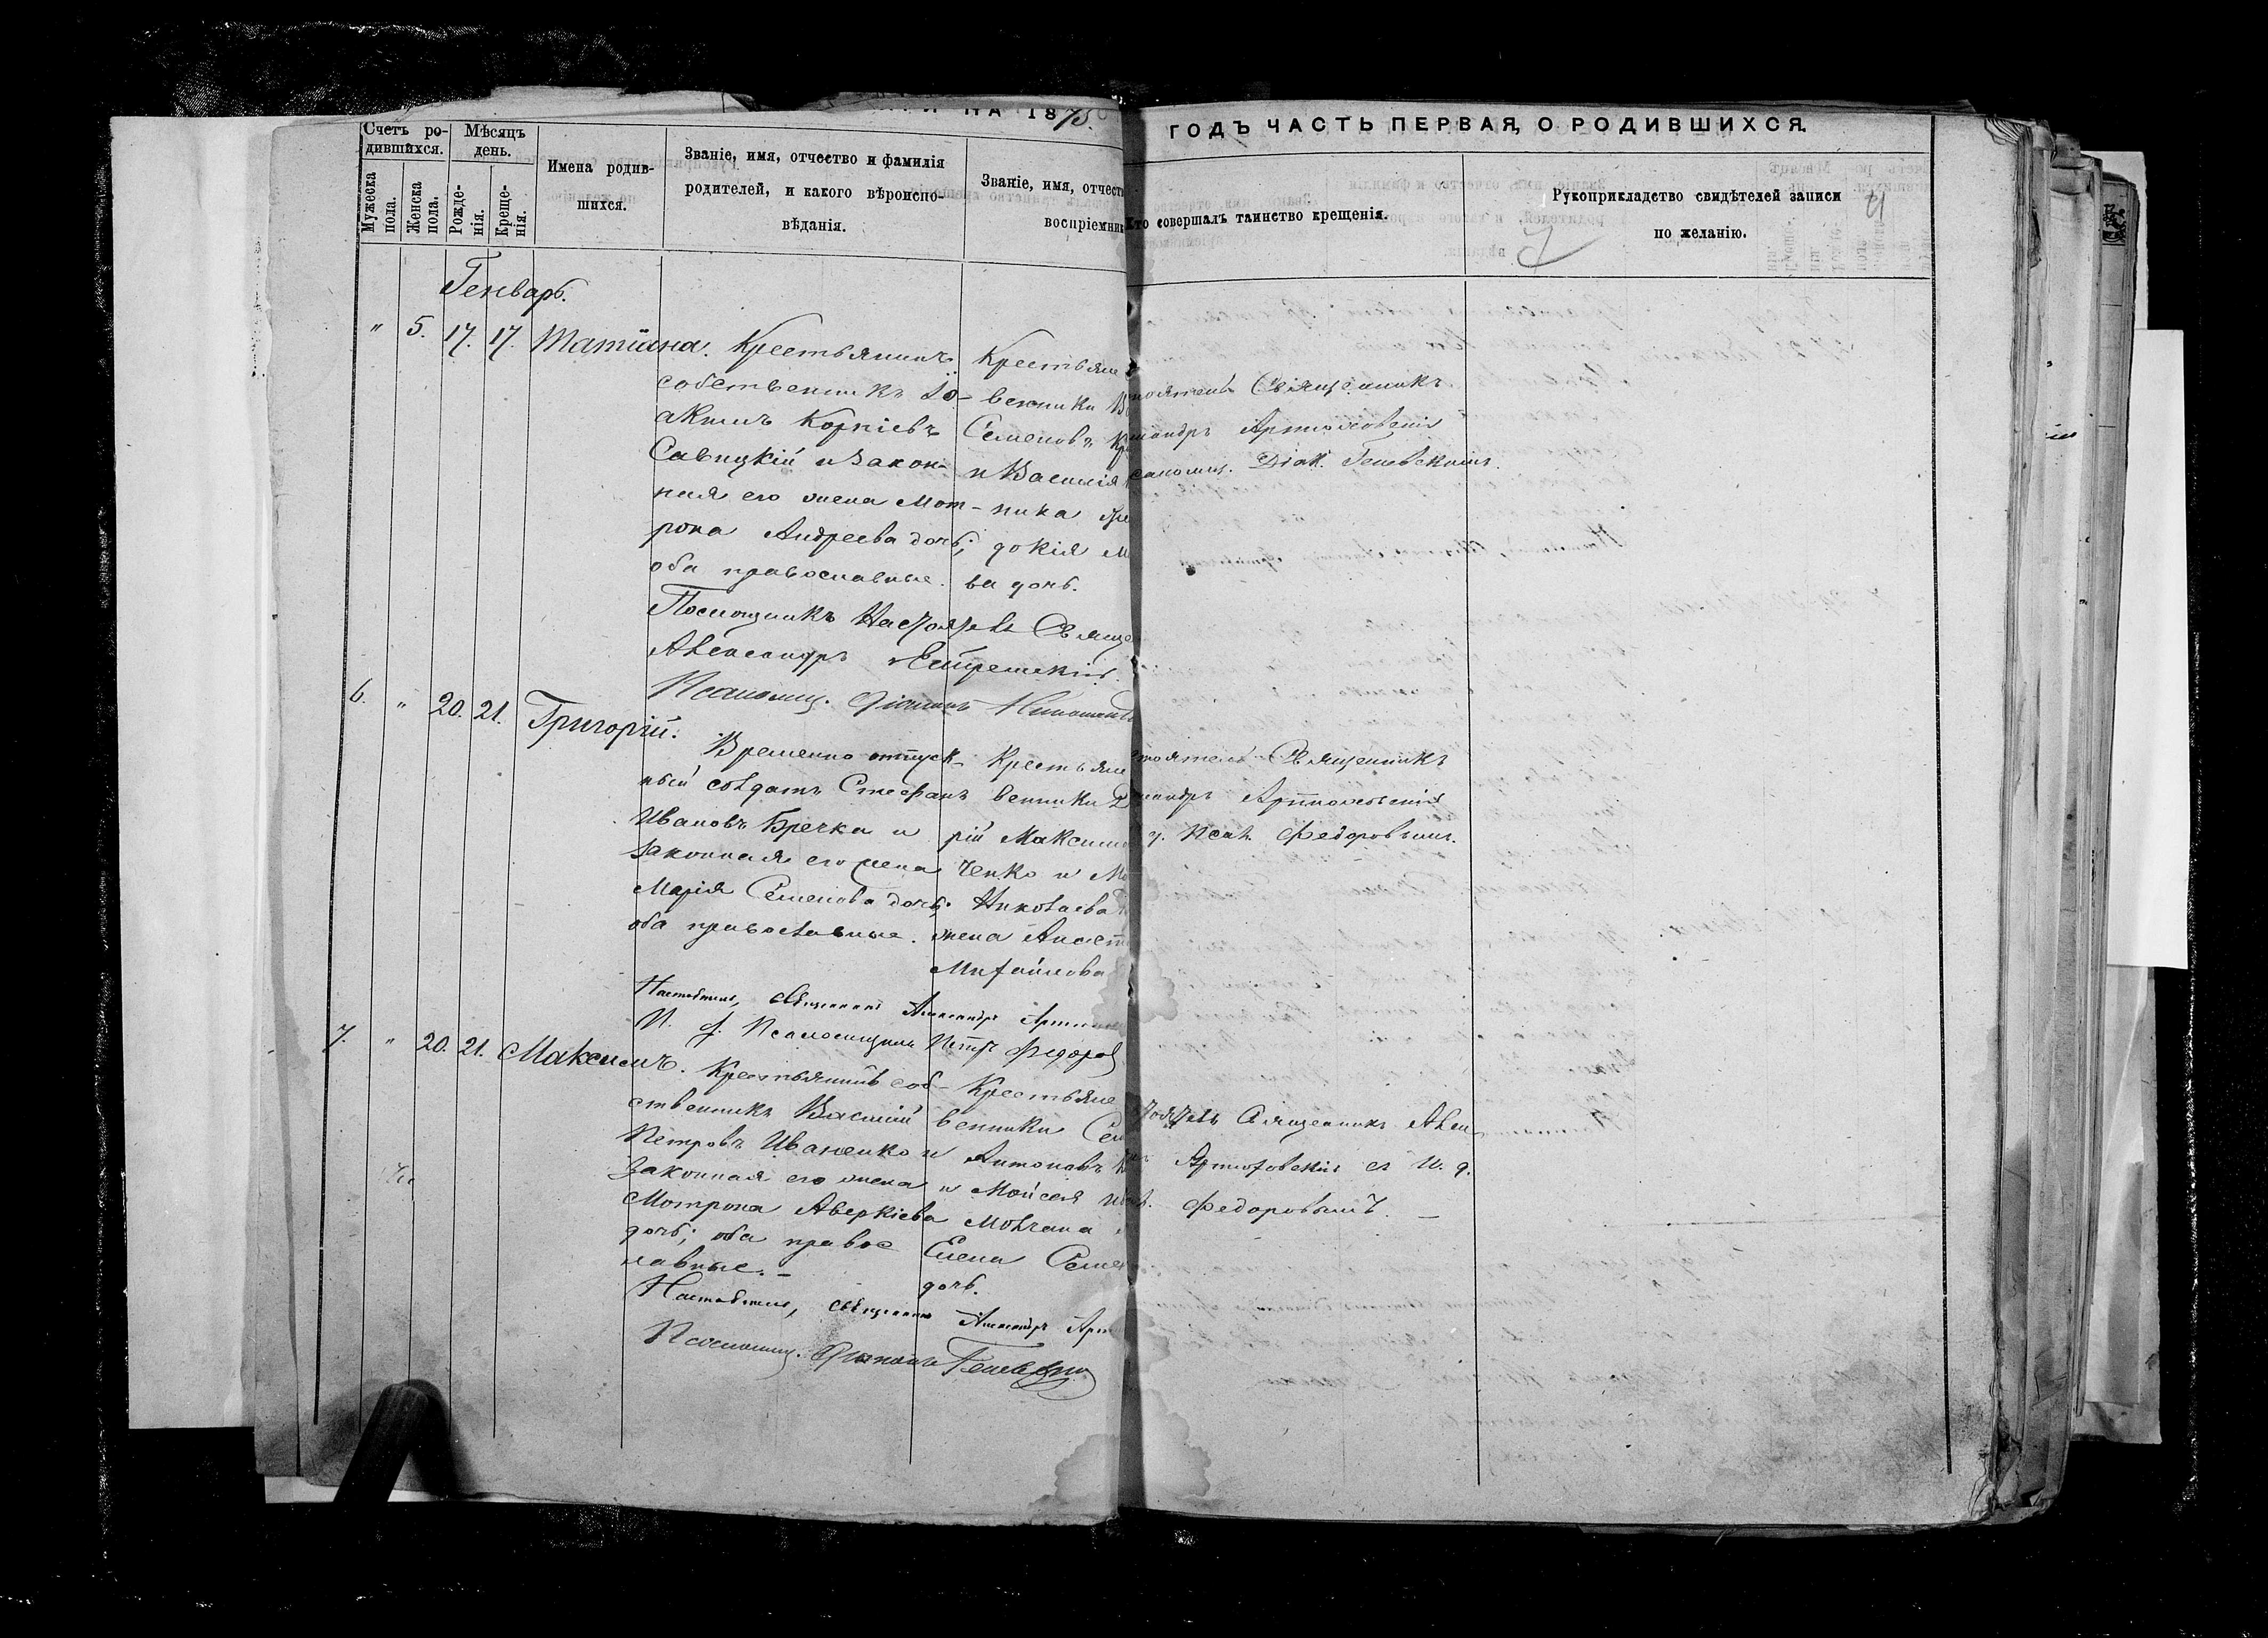 НА 1875.
ГОДЪ ЧАСТЬ ПЕРВАЯ, О РОДИВШИХСЯ.
Счетъ ро-
дившихся.
Мѣсяцъ
день.
Мужеска
пола.
Женска
пола.
Рожде-
нія.
Креще-
нія.
Имена родив-
шихся.
Званіе, имя, отчество и фамилія
родителей, и какого вѣроиспо-
вѣданія.
Званіе, имя, отчест
воспріемни
Кто совершалъ таинство крещенія.
Рукоприкладство свидѣтелей записи
по желанію.
Генварь.
" 5. 17. 17. Татіана.
Крестьянинъ
собственникъ Іо-
акимъ Корніевъ
Савицкій и закон-
ная его жена Мот-
рона Андреева дочь;
оба православные.
Крестьяне
венники
Семеновъ
и Василія
ника
докія М
ва дочь.
Священникъ
Артюховскій
псаломщ. Діак. Геневскимъ.
Помощникъ Настоятеля Свяще
Александръ
Псаломщ. Діаконъ
6. " 20. 21. Григорій.
Временно отпуск-
ный солдатъ Стефанъ
Ивановъ Бречка и
законная его жена
Марія Семенова дочь;
оба православные.
Крестьяне
венники
рій Максимо
ченко и М
Николаева
жена Анаст
Михайлова
Священникъ
Артюховскій
д. Псал. Федоровымъ.
Настоятель, Священникъ Александръ Артюхов
И. д. Псаломщика Петръ Федоров
7. " 20. 21. Максимъ.
Крестьянинъ соб-
ственникъ Василій
Петровъ Иваненко и
законная его жена
Мотрона Аверкіева
дочь; оба правос
лавные. –
Крестьяне
венники Сем
Антоновъ
и Мойсея
Молчана
Елена Семе
дочь.
Священникъ Алек-
Артюховскій съ И. д.
Федоровымъ. –
Настоятель, Священникъ Александръ Арт
Псаломщ. Діаконъ Геневскій